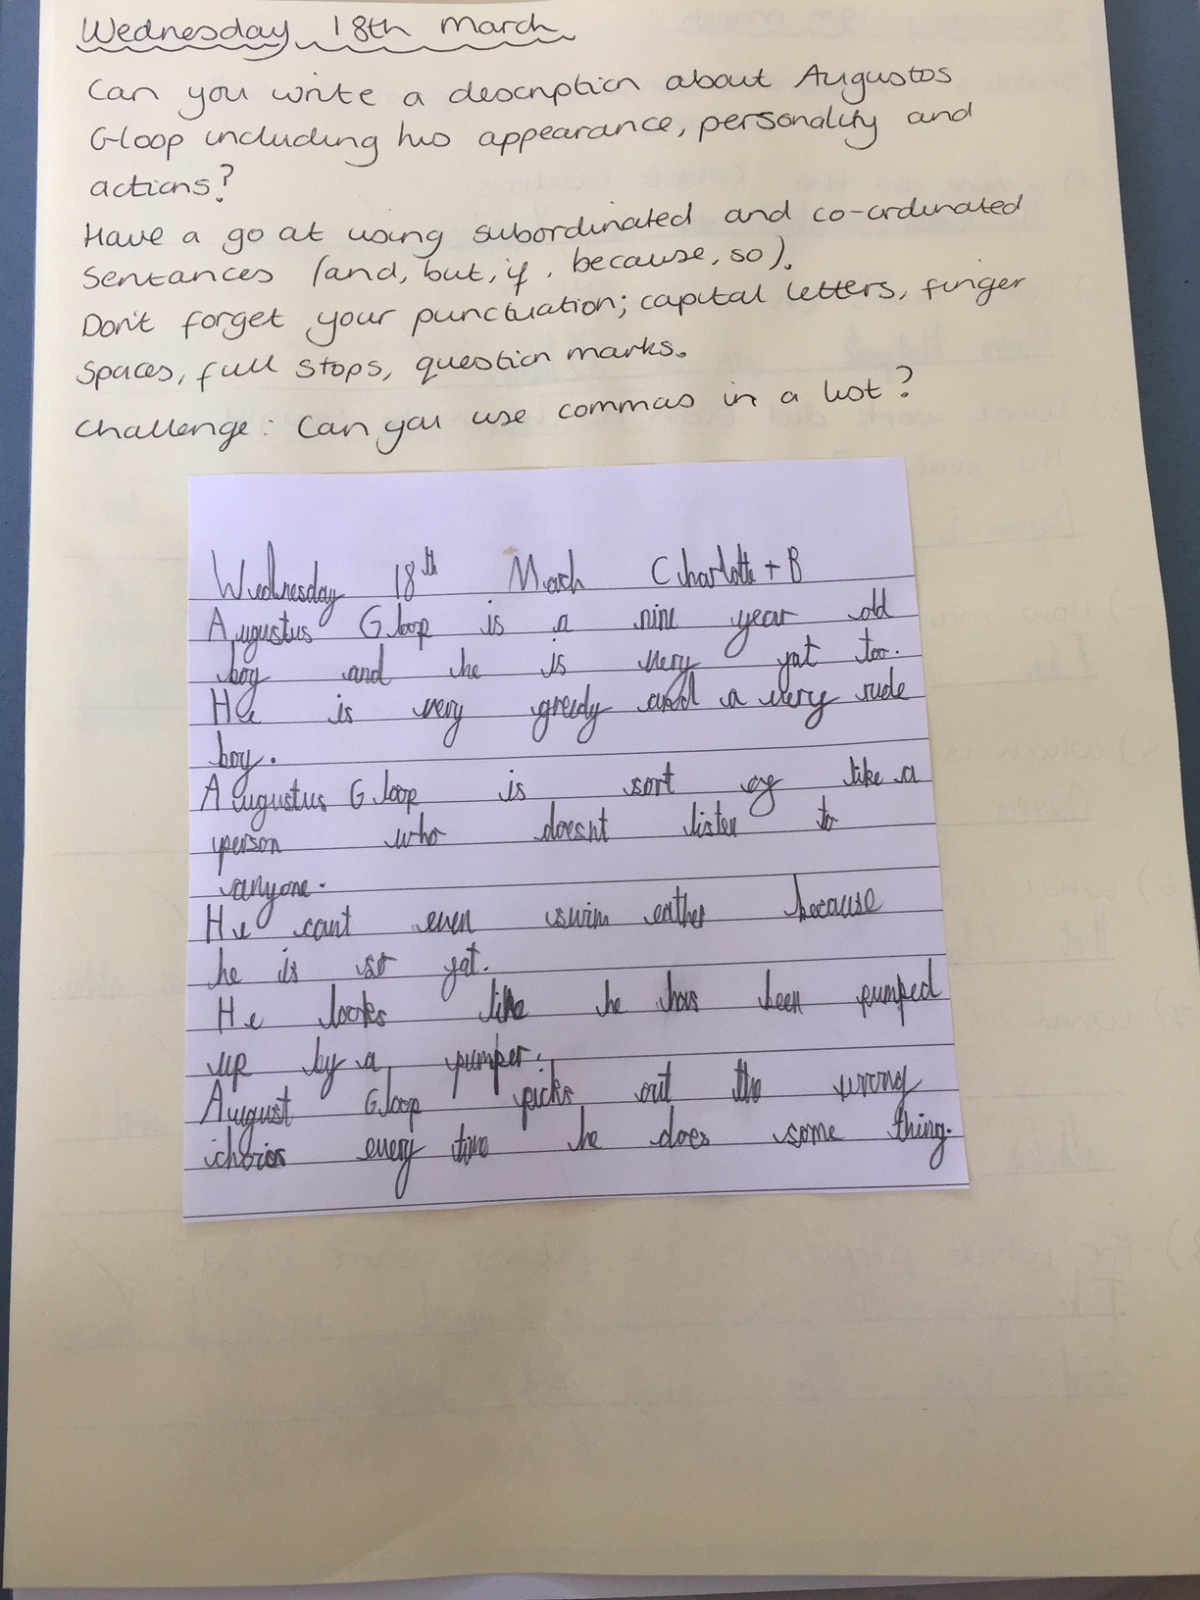 Wednesday 18th March
Can you write a description about Augustos
Gloop including his appearance, personality and
actions?
Have a go at using subordinated and co-ordinated
Sentances (and, but, if, because, so).
Don't forget your punctuation; capital letters, finger
spaces, full stops, question marks.
Challenge: Can you use commas in a list?
Wednesday 18th March Charlotte + B
Augustus Gloop is a nine year old
boy and he is very fat too.
He is very greedy and a very rude
boy.
Augustus Gloop is sort of like a
person who doesnt listen to
anyone.
He cant even swim eather because
he is so fat.
He looks like he has been pumped
up by a pumper.
August Gloop picks out the wrong
every time he does some thing.